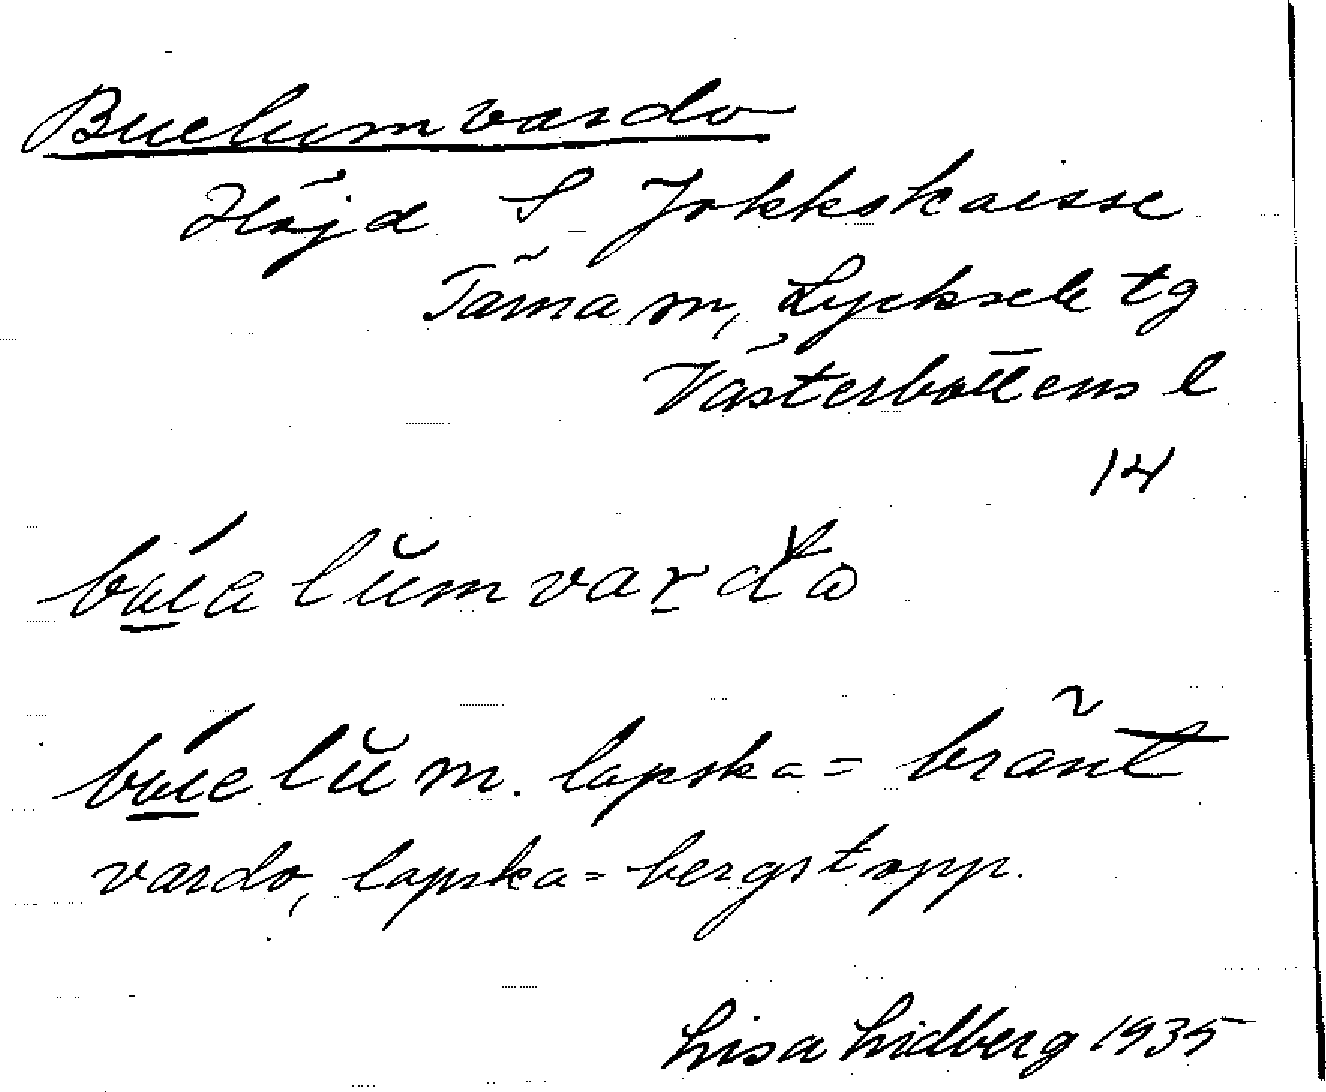 Buelumvardo
Höjd S Jokkskaisse
Tärna sn, Lycksele tg
Västerbottens l
14
lapska = bränt
vardo, lapska = bergstopp.
Lisa Lidberg 1935